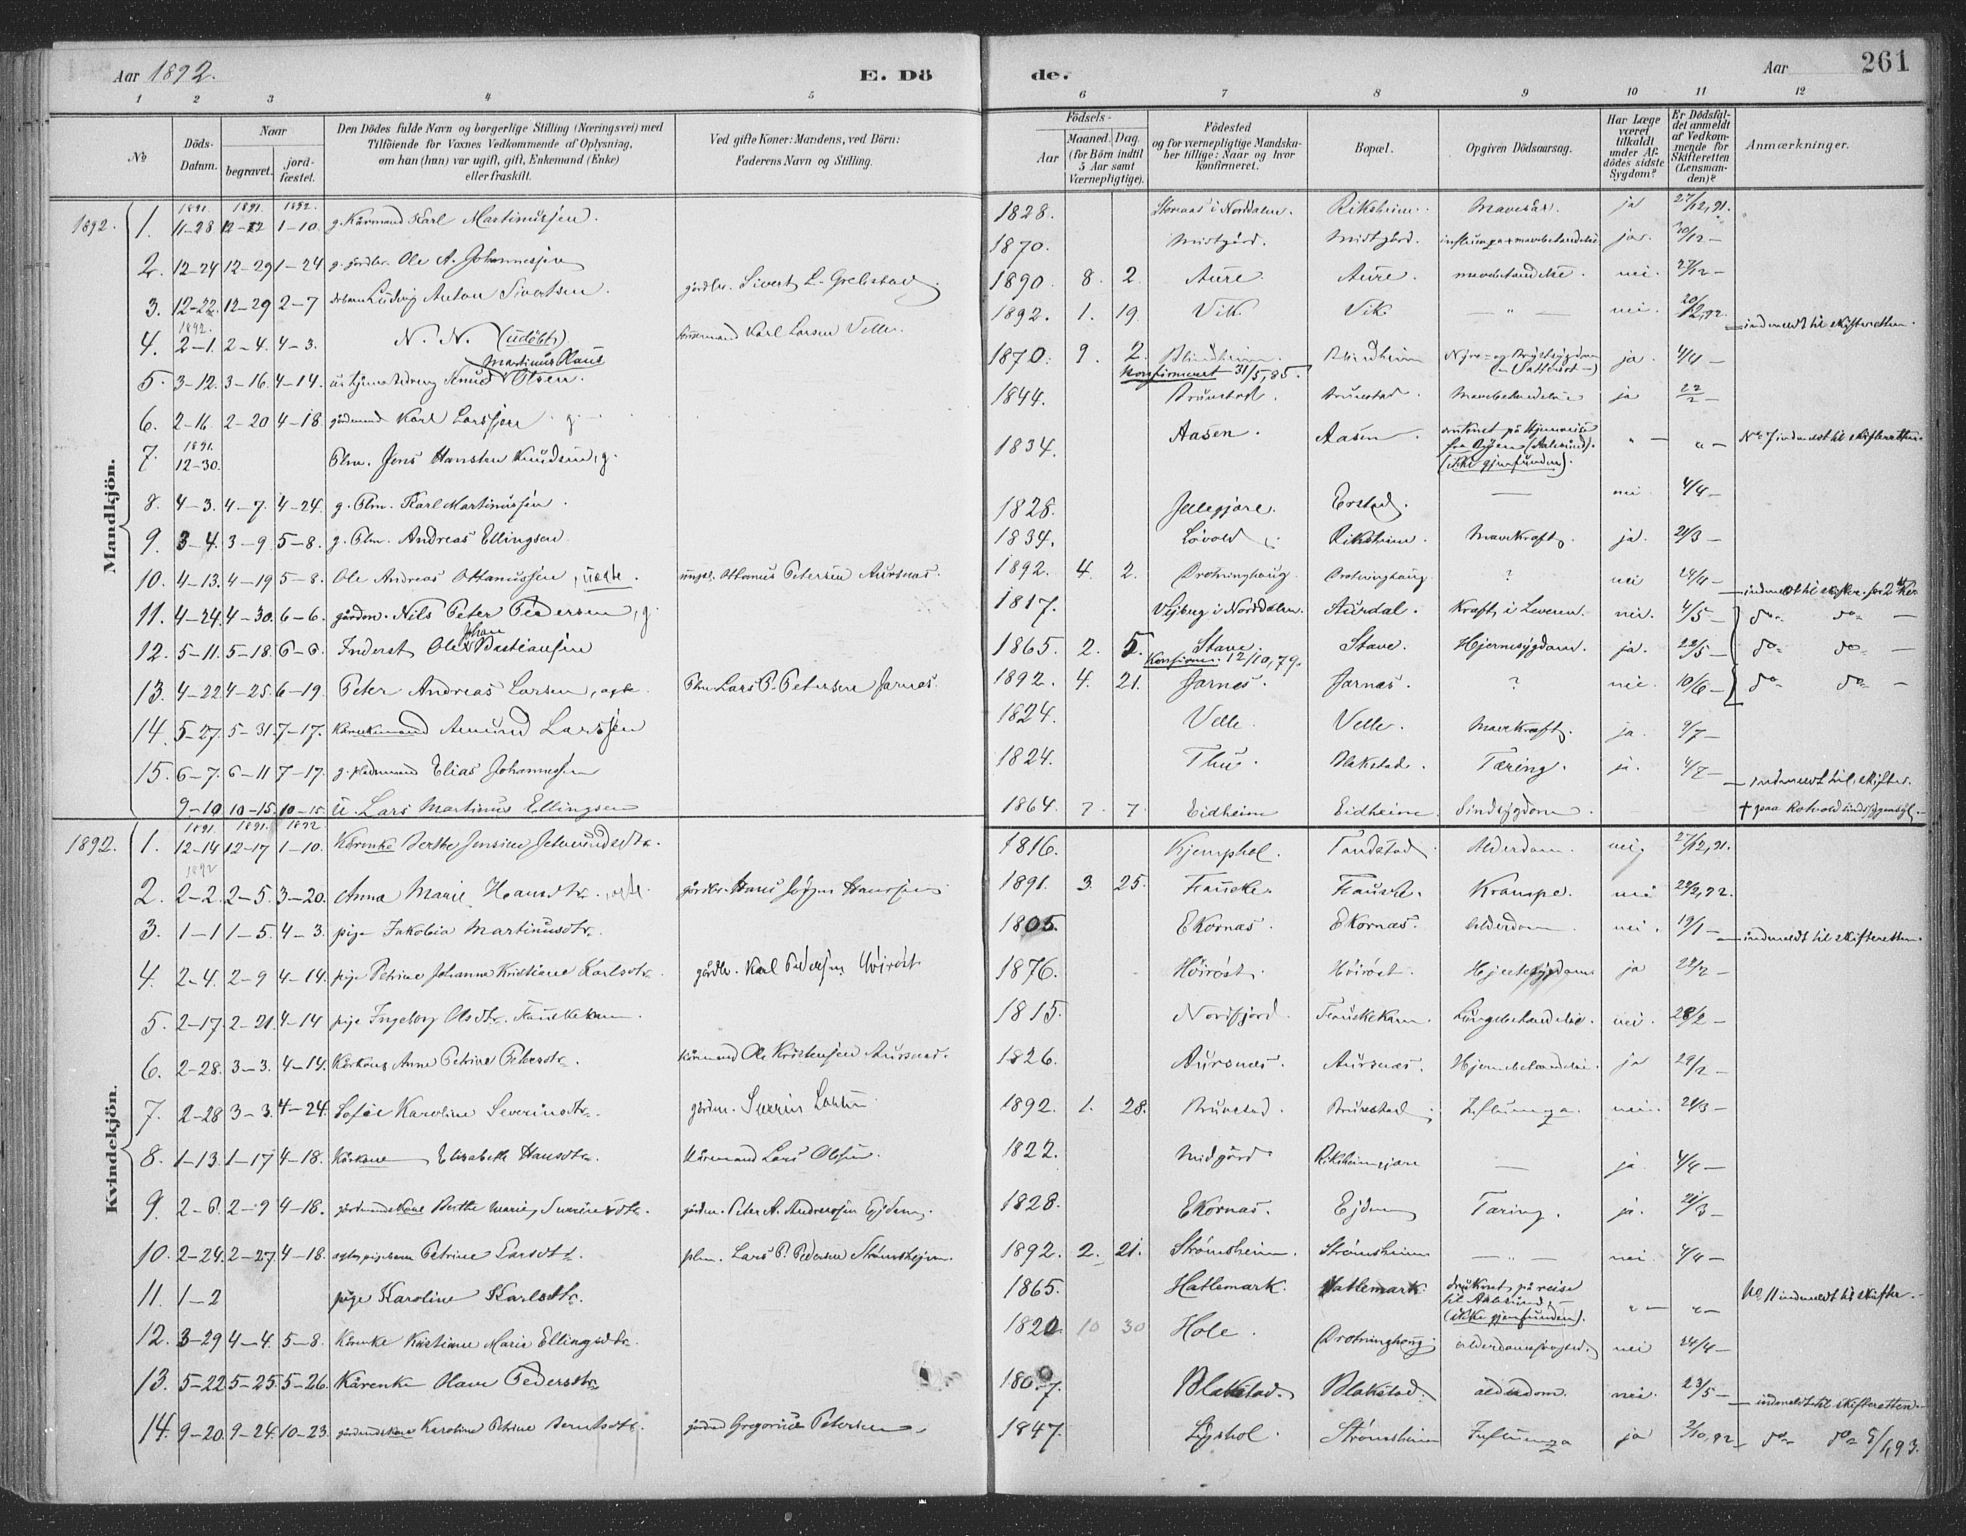 Aar 1892. E. Dö de. Aar 261
1 2 3 4 5 6 7 8 9 10 11 12
No Döds-Datum. Naar begravet. jord-fæstet. Den Dödes fulde Navn og borgerlige Stilling (Næringsvei) med Tilföiende for Voxnes Vedkommende af Oplysning, om han (hun) var ugift, gift, Enkemand (Enke) eller fraskilt. Ved gifte Koner: Mandens, ved Börn: Faderens Navn og Stilling. Födsels- Aar Maaned. Dag. (for Börn indtil 5 Aar samt Værnepligtige). Födested og for værnepligtige Mandskaber tillige: Naar og hvor konfirmeret. Bopæl. Opgiven Dödsaarsag. Har Læge været tilkaldt under Afdödes sidste Sygdom? Er Dödsfaldet anmeldt af Vedkommende for Skifteretten (Lensmanden)? Anmærkninger.
Mandkjön.
1892. 1. 1891. 11-28 1891. 12-12 1892. 1-10. g. Kårmand Karl Martinussen. 1828. Storaas i Norddalen. Riksheim. Mavesår. ja 27/12,91.
2. 12-24 12-29 1-24 g. gårdbr. Ole A. Johannessen 1870. Midtgård. Midtgård. ja. 30/12 –
3. 12-22. 12-29 2-7 Ludvig Anton Sivertsen. gårdbr. Sivert L. Grebstad. 1890. 8. 2. Aure. Aure. mavebetændelse. nei. 27/12 –
4. 1892. 2-1. 2-4. 4-3. N. N. (udöbt) Karl Larsen Velle. 1892. 1. 19. Vik Vik – " – nei. 20/2,92. – indmeldt til skifteretten.
5. 3-12. 3-16. 4-14. Knud Martinus Olaus Olsen. 1870. 9. 2. Blindheim. Konfirmeret 31/5,85. Blindheim Nyre- og Brystsygdom ja. 4/4 –
6. 2-16. 2-20 4-18. gårdmand Karl Larssen g. 1844. Brunstad. Brunstad. Mavebetændelse ja 22/2 –
7. 1891. 12-30. Plm. Jens Hansten Knudsen, g. 1834. Aasen. Aasen. druknet på Hjemreise fra (Aalesund). (ikke gjenfunden). " – " – No 7 indmeldt til skifteretten.
8. 4-3. 4-7. 4-24. g. Plm. Karl Martinussen. 1828. Jellegjære. Erstad. — nei 4/4 –
9. 3-4. 3-9 5-8. g. Plm. Andreas Ellingsen. 1834. Lövold. Riksheim. Mavekraft. ja. 21/3 –
10. 4-13. 4-19 5-8. Ole Andreas Ottomussen, uægte. ungk. Ottomus Petersen Aursnæs. 1892. 4. 2. Drotninghaug. Drotninghaug ? nei 24/4 –
11. 4-24. 4-30. 6-6. gårdm. Nils Peter Pedersen, g. 1817. i Norddalen. Aursdal. Kraft i Leveren. nei. 4/5 – do do –
12. 5-11. 5-18. 6-6. Inderst Ole Johan Bastiansen 1865. 2. 5. Stave. Konfirm. 12/10,79. Stave. Hjernesygdom. ja. 22/5 – do do –
13. 4-22. 4-25. 6-19. Peter Andreas Larsen, ægte. Plm. Lars P. Petersen Jarnes. 1892. 4. 21. Jarnes. Jarnæs. ? nei. 10/6 – do do –
14. 5-27. 5-31. 7-17. Kårenkemand Amund Larssen 1824. Velle. Velle. Mavekraft. ja. 9/7 –
15. 6-7. 6-11 7-17. g. Elias Johannessen 1824. Thu. Blakstad. Tæring. ja. 4/7 – – indmeldt til skifter.
9-10 10-15. 10-15 u. Lars Martinus Ellingsen 1864 7 7 Eidheim Eidheim Sindssygdom. † paa Rotvold sindssygeasyl.
Kvindekjön.
1892. 1. 1891. 12-14 1891. 12-17 1892 1-10. Kårenke Berthe Jensine 1816. Kjemphol. Tandstad. Alderdom. nei. 27/12,91.
2. 1892 2-2. 2-5. 3-20. Anna Marie Hansdtr. ægte. gårdbr. Hans Jörgen Hanssen 1891. 3. 25. Fauske. Fauske. Krampe. nei 22/2,92.
3. 1-1 1-5. 4-3. pige Jakobia Martinusdtr. 1805. Ekornæs. Ekornæs. Alderdom. nei. 19/1 – – indmeldt til skifteretten.
4. 2-4. 2-9 4-14. pige Petrine Johanna Kristiane Karlsdtr. gårdbr. Karl Pedersen Höiröst 1876. Höiröst. Höiröst. Hjertesygdom ja 22/2 –
5. 2-17. 2-21. 4-14 pige Ingeborg Olsdtr. Fauskekam. 1815. Norifjord. Fauskekam. Lungebetændelse. nei. 28/2 –
6. 2-28. 3-3. 4-14. Kårkone Anne Petrine Petersdtr. Kårmand Ole Kristensen Aursnæs. 1826. Aursnæs. Aursnæs. Hjernebetændelse. ja 29/2 –
7. 2-28 3-3. 4-24. Sofie Karoline Severinsdtr. gårdm. Severin 1892. 1. 28. Brunstad. Brunstad. Influenza. nei. 21/3 –
8. 1-13. 1-17 4-18. Kårkone Elisabeth Hansdtr. Kårmand Lars Olsen. 1822. Midgård Riksheimgjære — ja. 4/4 –
9. 2-6. 2-9 4-18. gårdmandskone Berthe Marie Severinsdtr. gårdm. Peter A. Andreassen Ejdem. 1828. Ekornæs. Ejdem Tæring. ja. 21/3 –
10. 2-24. 2-27. 4-18. Petrine Larsdtr. plm. Lars P. Pedersen Strömsheim. 1892. 2. 21. Strömsheim. Strömsheim — nei 4/4 –
11. 1-2 pige Karoline Karlsdtr. 1865. Hatlemark. Hatlemark. druknet på reise til Aalesund, (ikke gjenfunden). " – " – No 11 indmeldt til skifter.
12. 3-29 4-4. 5-8. Kårenke Kristiane Marie Ellingsdtr. 1820. 10 30 Hole. Drotninghaug. nei 24/4 –
13. 5-22. 5-25. 5-26. Kårenke Olave Pedersdtr. 1807. Blakstad. Blakstad. alderdom. nei. 23/5 – – indmeldt til skifteretten.
14. 9-20. 9-24. 10-23. gårdmandskone Karoline Petrine Berntsdtr. gårdmd Gregorius Petersen. 1847. Lyshol. Strömsheim Influenza ja 2/10,92 – do do 5/1 93.